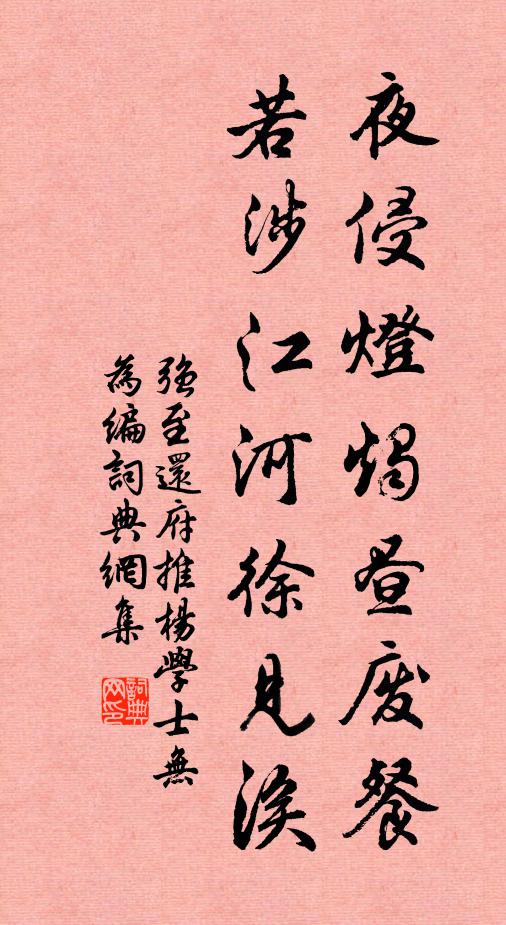 夜侵燈燭晝廢餐
若涉江河徐見涘
強至還府推楊學士無
為編詞典網集
詞典網印